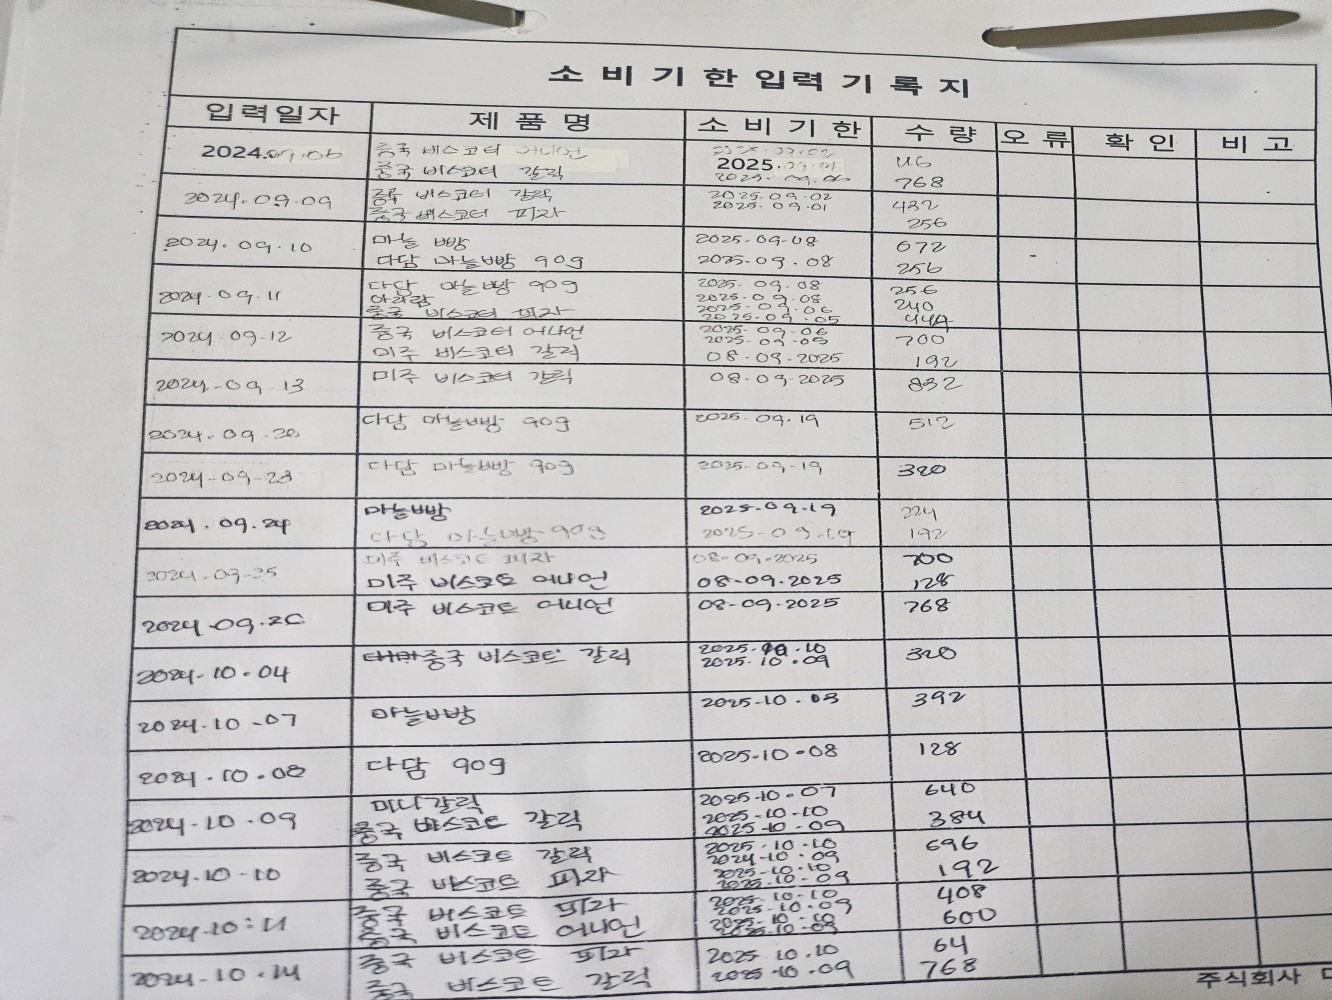 소 비 기 한 입 력 기 록 지
입력일자 제 품 명 소 비 기 한 수 량 오 류 확 인 비 고
2024.09.06 중국 비스코티 어니언 2025. 116
중국 비스코티 갈릭 2025. 09. 768
2024.09.09 중국 비스코티 갈릭 2025.09.02 432
중국 비스코티 피자 2025.09.01 256
2024.09.10 마늘빵 2025-09-08 672
다담 마늘빵 90g 2025.09.08 256
2024.09.11 다담 마늘빵 90g 2025.09.08 256
아라람 2025.09.08 240
중국 비스코티 피자 2025.09.06 444
2025.09.05
2024.09.12 중국 비스코티 어니언 2025.09.06 700
2025.09.05
미주 비스코티 갈릭 08.09.2025 192
2024-09.13 미주 비스코티 갈릭 08.09.2025 832
2024.09.20 다담 마늘빵 90g 2025.09.19 512
2024-09-23 다담 마늘빵 90g 2025-09-19 320
2024.09.24 마늘빵 2025-09.19 224
다담 마늘빵 90g 2025-09.19 192
2024.09-25 미주 비스코트 피자 08-09-2025 700
미주 비스코트 어니언 08-09.2025 128
2024-09.26 미주 비스코트 어니언 08-09-2025 768
2024-10-04 중국 비스코트 갈릭 2025.10.10 320
2025.10.09
2024-10-07 마늘빵 2025-10.03 392
2024.10.08 다담 90g 2025-10-08 128
2024-10.09 미니갈릭 2025-10.07 640
중국 비스코트 갈릭 2025-10-10 384
2025-10-09
2024.10-10 중국 비스코트 갈릭 2025.10-10 696
2024-10-09
중국 비스코트 피자 2025-10.10 192
2025.10.09
2024-10:11 중국 비스코트 피자 2025-10-10 408
2025-10.09
중국 비스코트 어니언 2025-10-10 600
2025-10-09
2024-10.14 중국 비스코트 피자 2025 10.10 64
중국 비스코트 갈릭 2025-10.09 768
주식회사